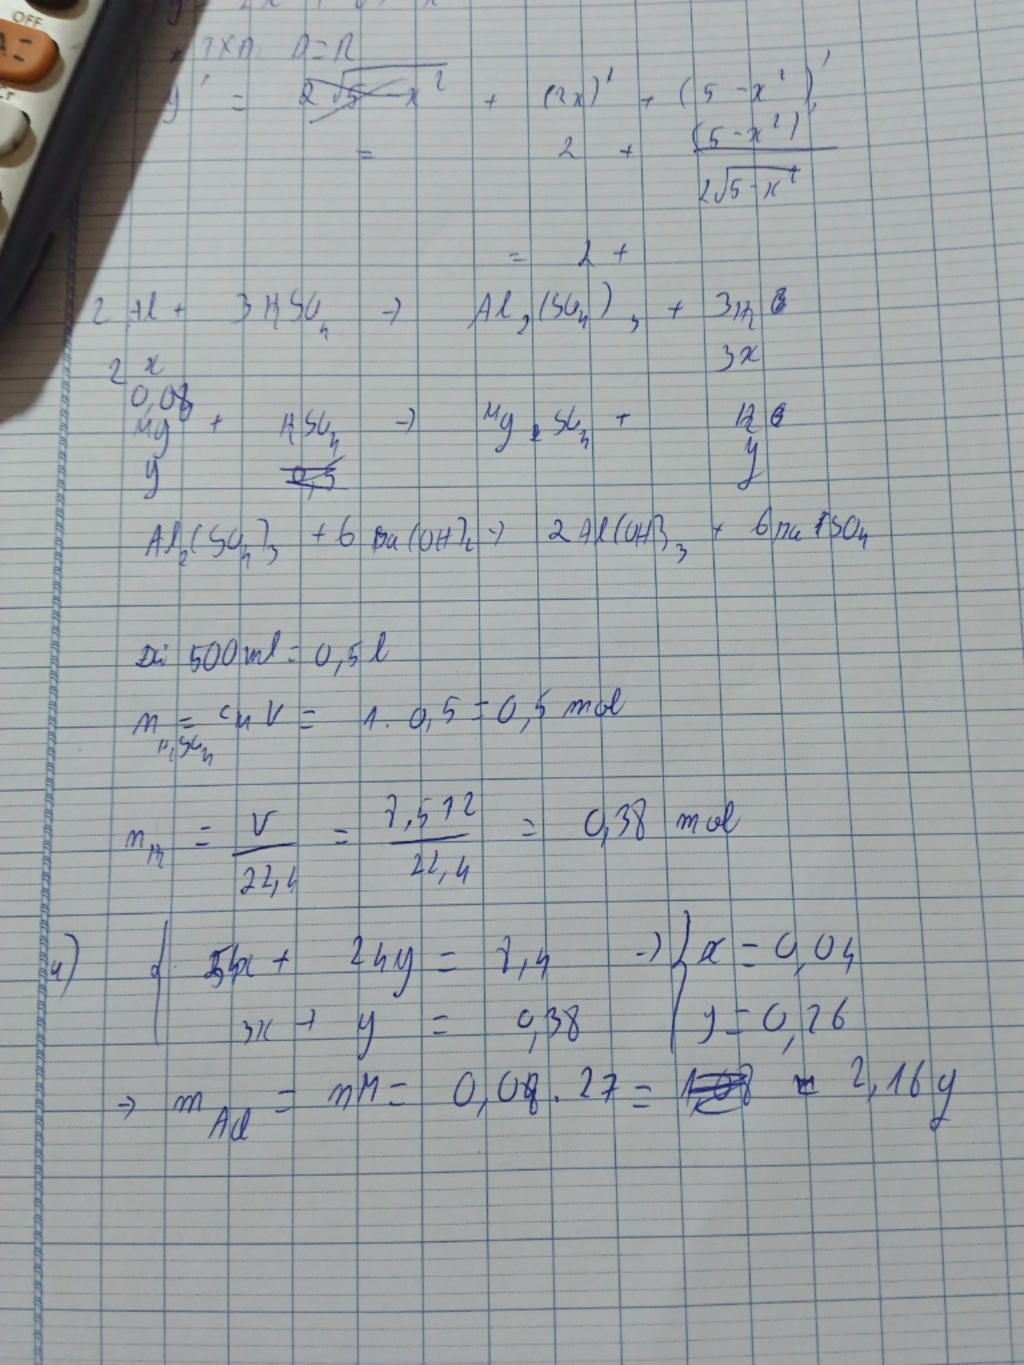 OFF
* TXĐ D = R
y' = 2√5-x² + (2x)' + (5-x²)'
= 2 + (5-x²)' / 2√5-x²
= 2 +
2 Al + 3 H₂SO₄ → Al₂(SO₄)₃ + 3H₂
2x 3x
0,08
Mg + H₂SO₄ → MgSO₄ + H₂
y 0,5 y
Al₂(SO₄)₃ + 6 Ba(OH)₂ → 2Al(OH)₃ + 6BaSO₄
500ml = 0,5l
n H₂SO₄ = CM V = 1 . 0,5 = 0,5 mol
n H₂ = V / 22,4 = 8,512 / 22,4 = 0,38 mol
54x + 24y = 8,4 → x = 0,04
3x + y = 0,38 y = 0,26
→ m Al = nM = 0,08 . 27 = 2,16 g